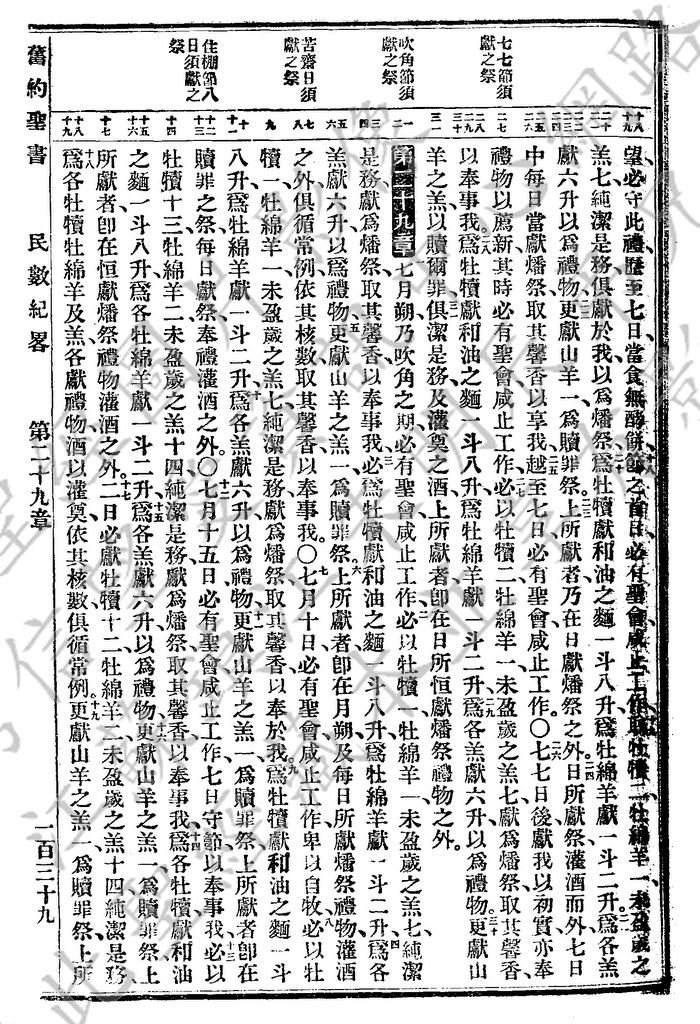 七七節須
獻之祭
吹角節須
獻之祭
苦齋日須
獻之祭
住棚節八
日須獻之
祭
望必守此禮歷至七日當食無酵餅節之首日必有聖會咸止工作取牡犢二牡綿羊一未盈歲之
羔七純潔是務俱獻於我以爲燔祭爲牡犢獻和油之麵一斗八升爲牡綿羊獻一斗二升爲各羔
獻六升以爲禮物更獻山羊一爲贖罪祭上所獻者乃在日獻燔祭之外日所獻祭灌酒而外七日
中每日當獻燔祭取其馨香以享我越至七日必有聖會咸止工作〇七七日後獻我以初實亦奉
禮物以薦新其時必有聖會咸止工作必以牡犢二牡綿羊一未盈歲之羔七獻爲燔祭取其馨香
以奉事我爲牡犢獻和油之麵一斗八升爲牡綿羊獻一斗二升爲各羔獻六升以爲禮物更獻山
羊之羔一以贖爾罪俱潔是務及灌奠之酒上所獻者卽在日所恒獻燔祭禮物之外
第二十九章 七月朔乃吹角之期必有聖會咸止工作必以牡犢一牡綿羊一未盈歲之羔七純潔
是務獻爲燔祭取其馨香以奉事我爲牡犢獻和油之麵一斗八升爲牡綿羊獻一斗二升爲各
羔獻六升以爲禮物更獻山羊之羔一爲贖罪祭上所獻者卽在月朔及每日所獻燔祭禮物灌酒
之外俱循常例依其核數取其馨香以奉事我〇七月十日必有聖會咸止工作卑以自牧必以牡
犢一牡綿羊一未盈歲之羔七純潔是務獻爲燔祭取其馨香以奉於我爲牡犢獻和油之麵一斗
八升爲牡綿羊獻一斗二升爲各羔獻六升以爲禮物更獻山羊之羔一爲贖罪祭上所獻者卽在
贖罪之祭每日獻祭奉禮灌酒之外〇七月十五日必有聖會咸止工作七日守節以奉事我必以
牡犢十三牡綿羊二未盈歲之羔十四純潔是務獻爲燔祭取其馨香以奉事我爲各牡犢獻和油
之麵一斗八升爲各牡綿羊獻一斗二升爲各羔獻六升以爲禮物更獻山羊之羔一爲贖罪祭上
所獻者卽在恒獻燔祭禮物灌酒之外二日必獻牡犢十二牡綿羊二未盈歲之羔十四純潔是務
爲各牡犢牡綿羊及羔各獻禮物酒以灌奠依其核數俱循常例更獻山羊之羔一爲贖罪祭上所
舊約聖書 民數紀畧 第二十九章 一百三十九